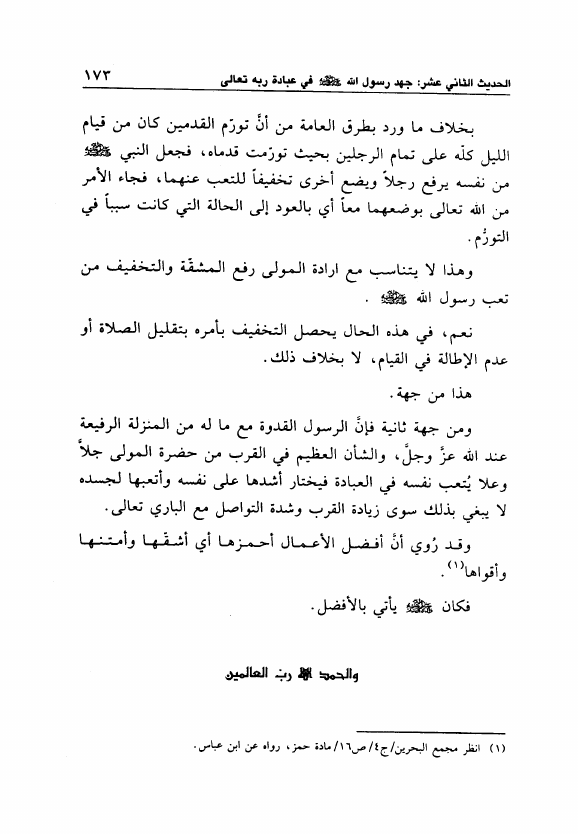 الحديث الثاني عشر: جهد رسول الله ﷺ في عبادة ربه تعالى ١٧٣
بخلاف ما ورد بطرق العامة من أنَّ تورّم القدمين كان من قيام
الليل كلّه على تمام الرجلين بحيث تورّمت قدماه، فجعل النبي ﷺ
من نفسه يرفع رجلاً ويضع أخرى تخفيفاً للتعب عنهما، فجاء الأمر
من الله تعالى بوضعهما معاً أي بالعود إلى الحالة التي كانت سبباً في
التورُّم.
وهذا لا يتناسب مع ارادة المولى رفع المشقّة والتخفيف من
تعب رسول الله ﷺ .
نعم، في هذه الحال يحصل التخفيف بأمره بتقليل الصلاة أو
عدم الإطالة في القيام، لا بخلاف ذلك.
هذا من جهة.
ومن جهة ثانية فإنَّ الرسول القدوة مع ما له من المنزلة الرفيعة
عند الله عزَّ وجلَّ، والشأن العظيم في القرب من حضرة المولى جلاَّ
وعلا يُتعب نفسه في العبادة فيختار أشدها على نفسه وأتعبها لجسده
لا يبغي بذلك سوى زيادة القرب وشدة التواصل مع الباري تعالى.
وقد رُوي أنَّ أفضل الأعمال أحمزها أي أشقّها وأمتنها
وأقواها(١).
فكان ﷺ يأتي بالأفضل.
والحمد لله رب العالمين
(١) انظر مجمع البحرين/ج٤/ص١٦/مادة حمز، رواه عن ابن عباس.